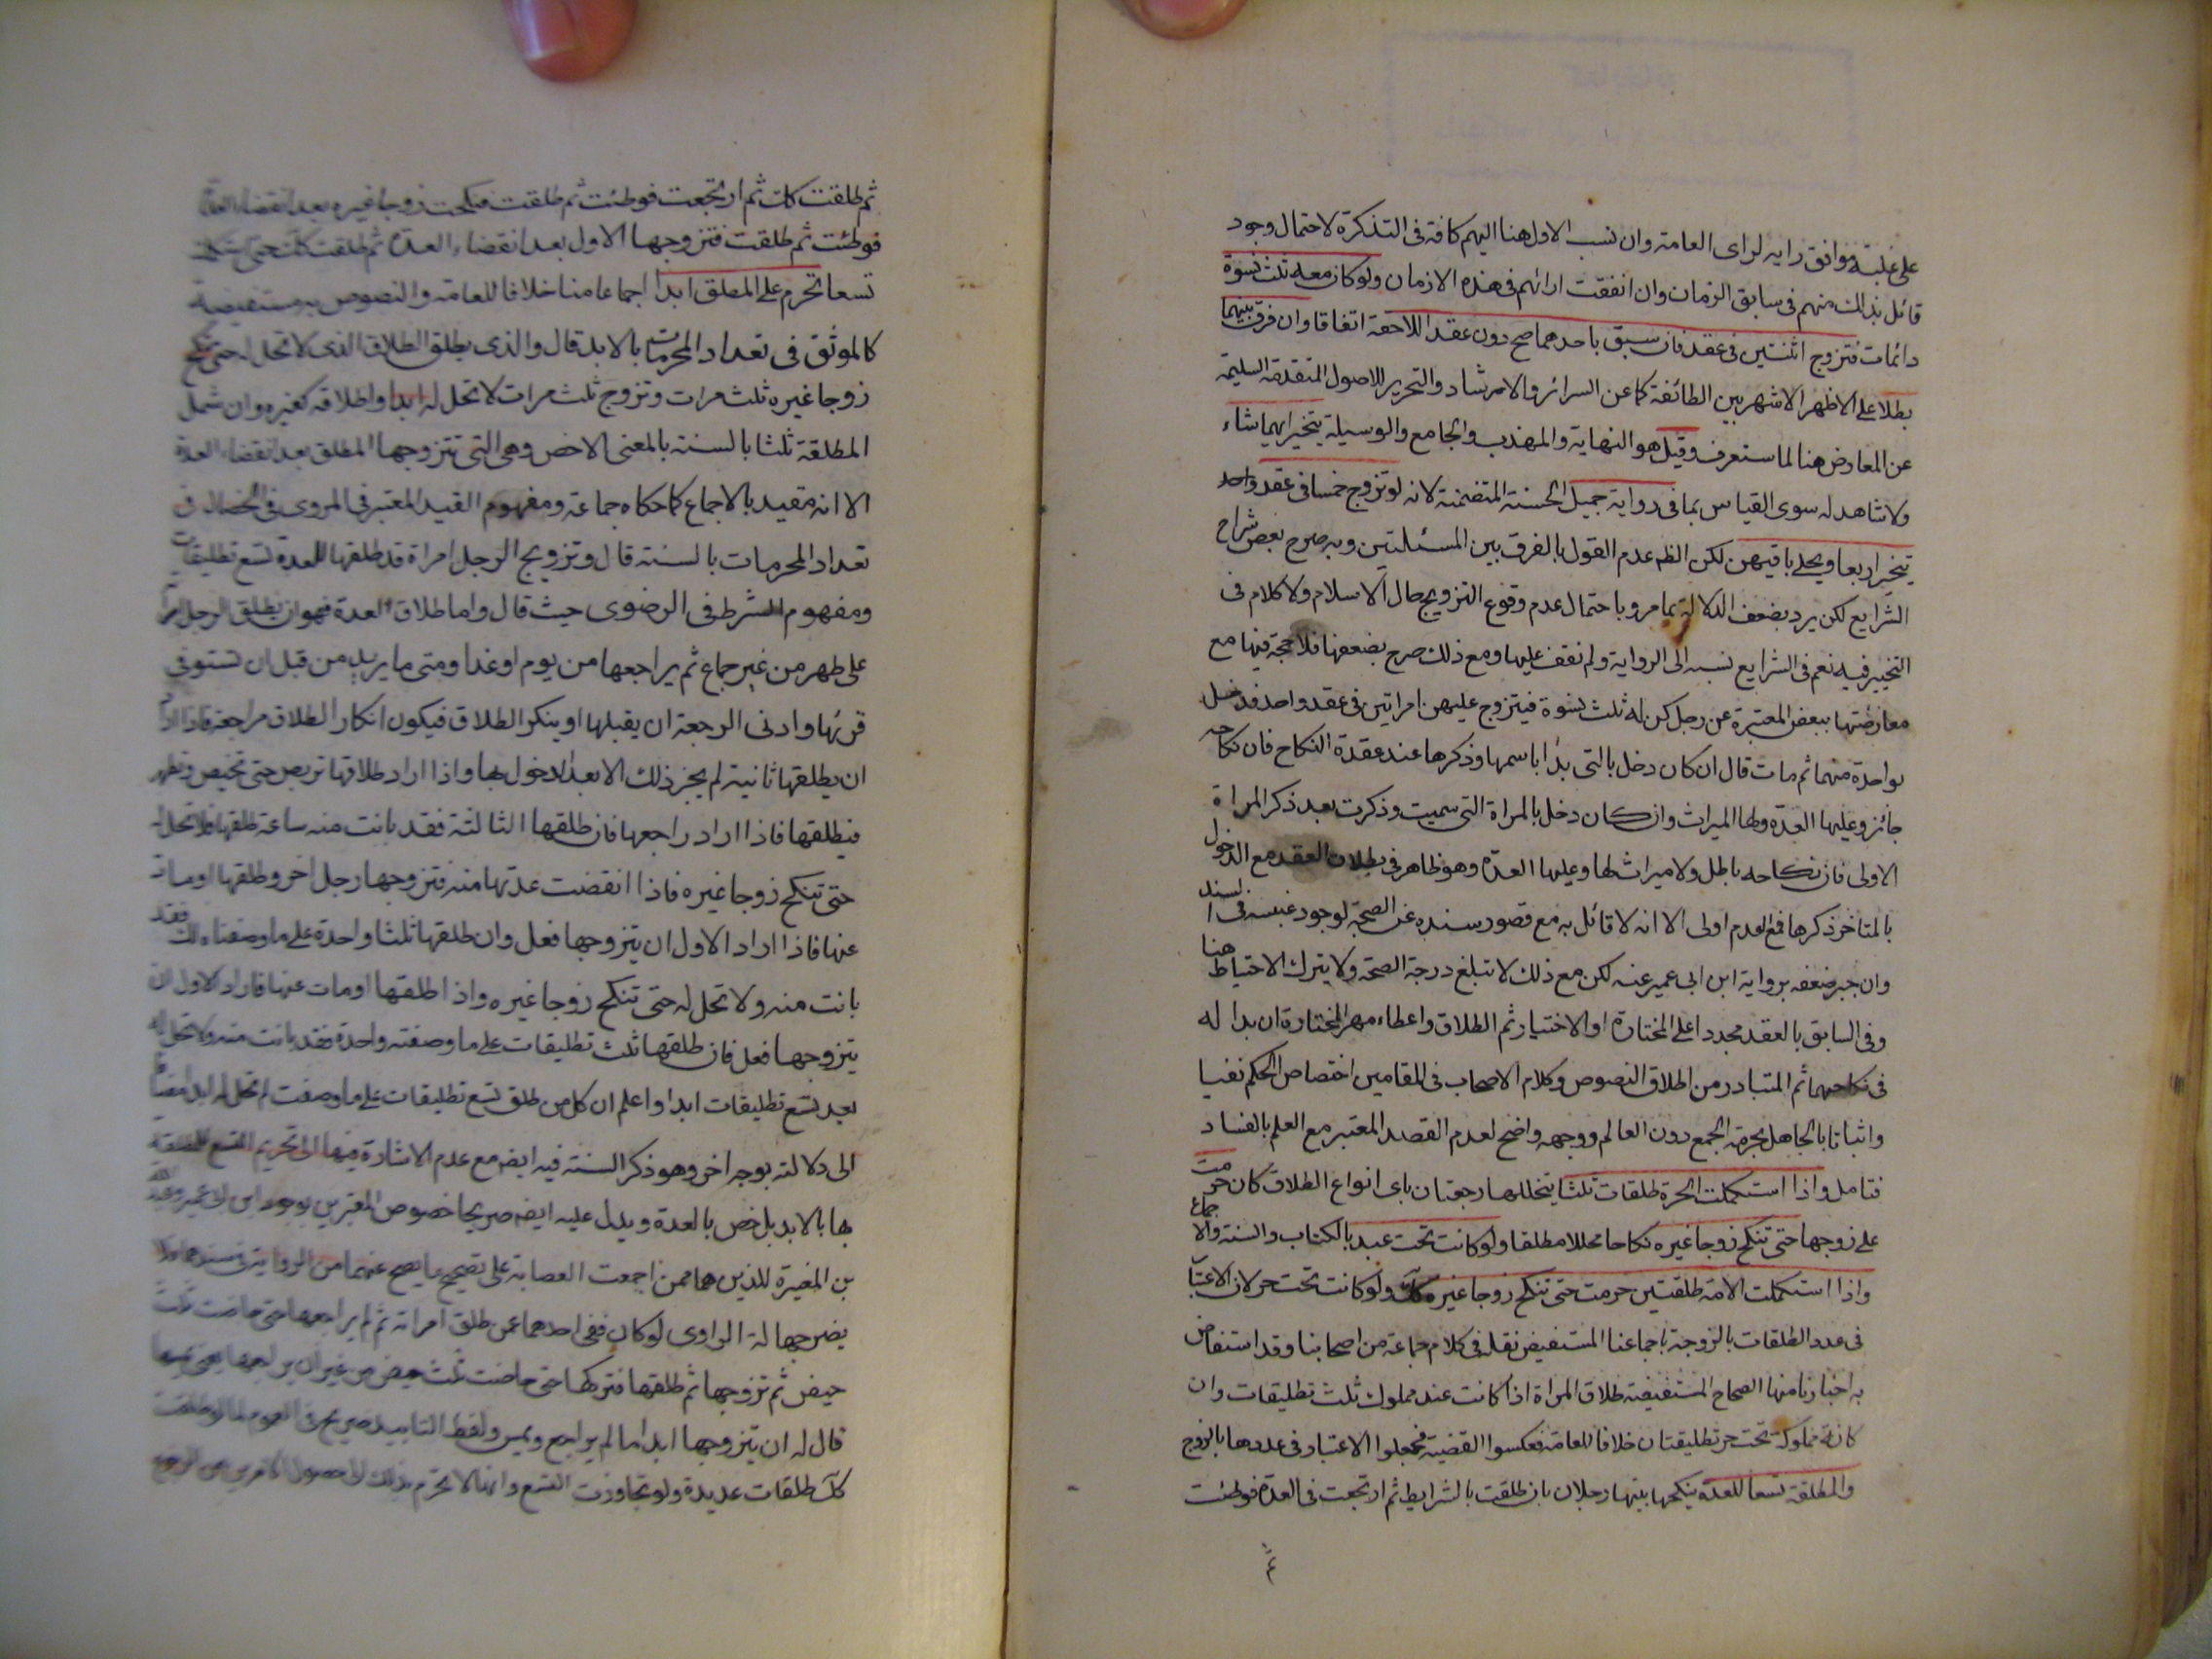 على غلبة موافق رايه لراى العامة وان نسب الاول هنا اليهم كافة فى التذكرة لاحتمال وجود
قائل بذالك منهم فى سابق الزمان وان اتفقت ارائهم فى هذه الازمان ولو كان معه ثلث نسوة
دائمات فتزوج اثنتين فى عقد فان سبق باحدهما صح دون عقد اللاحقة اتفاقا وان قرن بينهما
بطلا على الاظهر الاشهر بين الطائفة كما عن السرائر والارشاد والتحرير للاصول المتقدمة السليمة
عن المعارض هنا لما ستعرف وقيل هو النهاية والمهذب والجامع والوسيلة يتخير ايهما شاء
ولا شاهد له سوى القياس بما فى رواية جميل الحسنة المتضمنة لانه لو تزوج خمسا فى عقد واحد
يتخير اربعا ويخلى باقيهن لكن الظ عدم القول بالفرق بين المسئلتين وبه صرح بعض شراح
الشرايع لكن يرد بضعف الدلالة بما مر وباحتمال عدم وقوع التزويج حال الاسلام ولا كلام فى
التخيير فيه نعم فى الشرايع نسبه الى الرواية ولم نقف عليها ومع ذلك صرح بضعفها فلا حجة فيها مع
معارضتها ببعض المعتبرة عن رجل كن له ثلث نسوة فيتزوج عليهن امراتين فى عقد واحد فدخل
بواحدة منهما ثم مات قال ان كان دخل بالتى بدا باسمها وذكرها عند عقدة النكاح فان نكاحه
جائز وعليها العدة ولها الميراث وان كان دخل بالمراة التى سميت وذكرت بعد ذكر المراة
الاولى فان نكاحه باطل ولا ميراث لها وعليها العدة وهو ظاهر فى بطلان العقد مع الدخول
بالمتاخر ذكرها فمع العدم اولى الا انه لا قائل به مع قصور سنده عن الصحة لوجود عنبسه فى السند
وان جبر ضعفه برواية ابن ابى عمير عنه لكن مع ذلك لا تبلغ درجة الصحة ولا يترك الاحتياط هنا
وفى السابق بالعقد مجددا على المختارة او الاختيار ثم الطلاق واعطاء مهر المختارة ان بدا له
فى نكاحهما ثم المتبادر من اطلاق النصوص وكلام الاصحاب فى المقامين اختصاص الحكم نفيا
واثباتا بالجاهل بحرمة الجمع دون العالم ووجهه واضح لعدم القصد المعتبر مع العلم بالفساد
فتامل واذا استكملت الحرة طلقات ثلثا يتخللها رجعتان باى انواع الطلاق كان حرمت
على زوجها حتى تنكح زوجا غيره نكاحا محللا مطلقا ولو كانت تحت عبد بالكتاب والسنة والاجماع
واذا استكملت الامة طلقتين حرمت حتى تنكح زوجا غيره كك ولو كانت تحت حر لان الاعتبا
فى عدد الطلقات بالزوجة باجماعنا المستفيض نقله فى كلام جماعة من اصحابنا وقد استفاض
به اخبارنا منها الصحاح المستفيضة طلاق المراة اذا كانت عند مملوك ثلث تطليقات وان
كانة مملوكة تحت حر تطليقتان خلافا للعامة فعكسوا القضية فجعلوا الاعتبار فى عددها بالزوج
والمطلقة تسعا للعدة ينكحها بينها رجلان بان طلقت بالشرايط ثم ارتجعت فى العدة فوطئت
ثم طلقت كك ثم ارتجعت فوطئت ثم طلقت فنكحت زوجا غيره بعد انقضاء العدة
فوطئت ثم طلقت فتزوجها الاول بعد انقضاء العدة ثم طلقت كك حتى
تسعا تحرم على المطلق ابدا اجماعا منا خلافا للعامة والنصوص به مستفيضة
كالموثق فى تعداد المحرمات بالابد قال والذى يطلق الطلاق الذى لا تحل له حتى تنكح
زوجا غيره ثلث مرات وتزوج ثلث مرات لا تحل له ابدا واطلاقه كغيره وان شمل
المطلقة ثلثا بالسنة بالمعنى الاخص وهى التى تتزوجها المطلق بعد انقضاء العدة
الا انه مقيد بالاجماع كما حكاه جماعة ومفهوم القيد المعتبر فى المروى فى الخصال فى
تعداد المحرمات بالسنة قال وتزويج الرجل امراة قد طلقها للعدة تسع تطليقات
ومفهوم الشرط فى الرضوى حيث قال واما طلاق العدة فهو ان يطلق الرجل
على طهر من غير جماع ثم يراجعها من يوم او غدا ومتى ما يريد من قبل ان تستوفى
قرئها وادنى الرجعة ان يقبلها او ينكر الطلاق فيكون انكار الطلاق مراجعة فاذا اراد
ان يطلقها ثانية لم يجز ذلك الا بعد الدخول بها واذا اراد طلاقها تربص حتى تحيض وتطهر
فيطلقها فاذا اراد راجعها فان طلقها الثالثة فقد بانت منه ساعة طلقها فلا تحل له
حتى تنكح زوجا غيره فاذا انقضت عدتها منه فتزوجها رجل اخر وطلقها او مات
عنها فاذا اراد الاول ان يتزوجها فعل وان طلقها ثلثا واحدة على ما وصفناه لك فقد
بانت منه ولا تحل له حتى تنكح زوجا غيره واذا طلقها او مات عنها فاراد الاول ان
يتزوجها فعل فان طلقها ثلث تطليقات على ما وصفته واحدة فقد بانت منه ولا تحل له
بعد تسع تطليقات ابدا واعلم ان كل من طلق تسع تطليقات على ما وصفت لم تحل له ابدا
الى دلالته بوجه اخر وهو ذكر السنة فيه ايض مع عدم الاشارة فيها الى تحريم التسع
بها بالابد بل خص بالعدة ويدل عليه ايض صريحا خصوص المعتبرين بوجود ابن ابى عمير
بن المغيرة للذين هما ممن اجمعت العصابة على تصحيح ما يصح عنهما من الرواية فى سندهما فلا
يضر جهالة الراوى لو كان ففى احدهما عن طلق امراته ثم لم يراجعها حتى حاضت ثلث
حيض ثم تزوجها ثم طلقها فتركها حتى حاضت ثلث حيض من غير ان يراجعها
قال له ان يتزوجها ابدا ما لم يراجع ويمس ولفظ التابيد صريح فى العموم لما لو طلقت
كك طلقات عديدة ولو تجاوزت التسع وانها لا تحرم بذلك